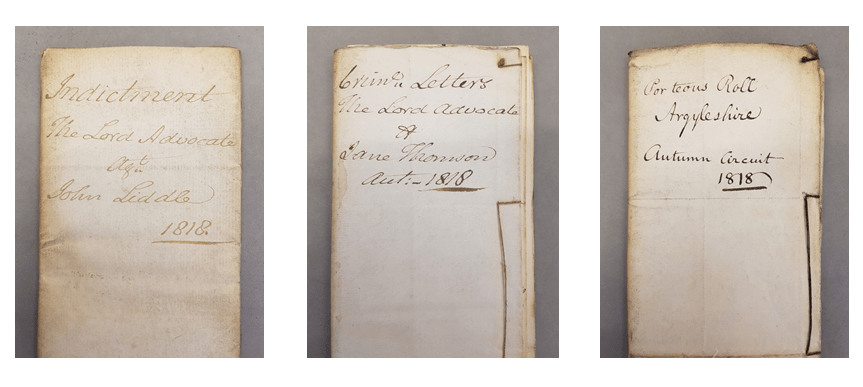 Indictment
The Lord Advocate
agt
John Liddle
1818.
Crim.l Letters
The Lord Advocate
&
Jane Thomson
Aut:– 1818
Porteous Roll
Argyleshire
Autumn Circuit
1818